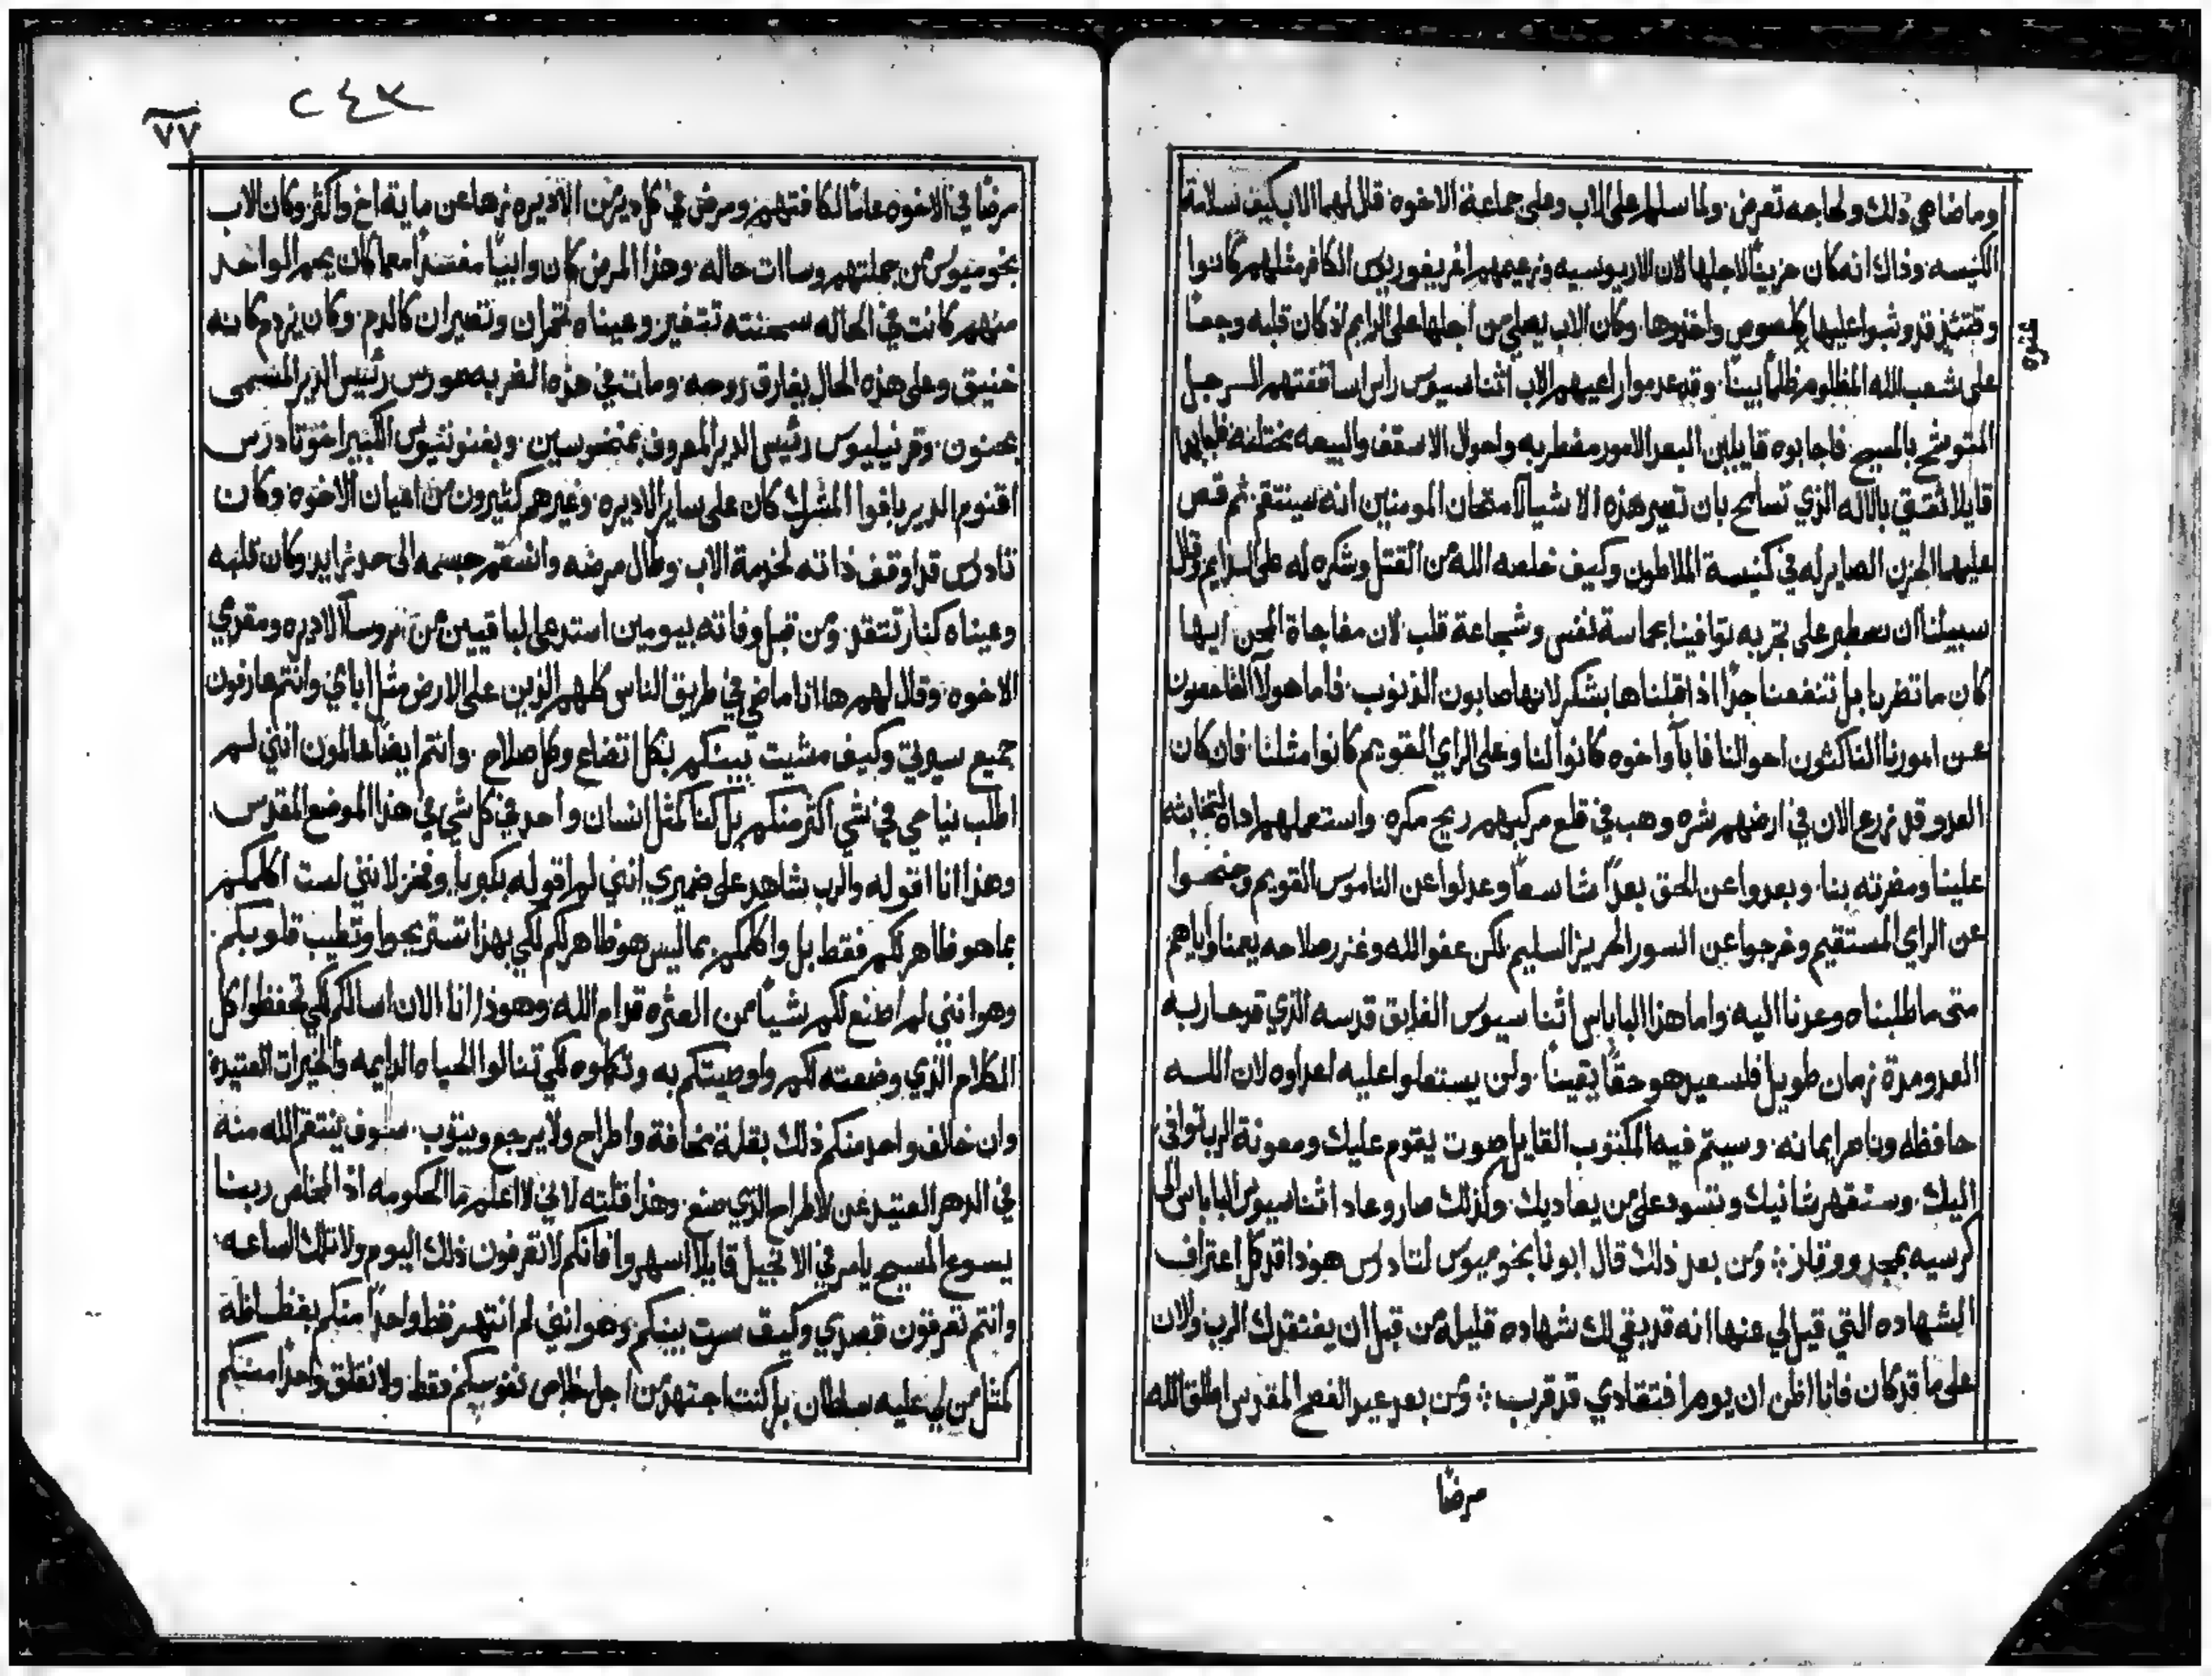 وماضاهي ذلك ولحاجه تعرض ولما سلما على الاب وعلى جماعة الاخوه قال لهما الاب كيف سلامة
الكنيسه وذاك انه كان حزينًا لاجلها لان الاريوسيه وزعيمهم اغريغوريوس الكافر مثلهم كانوا
وقتئذ قد وثبوا عليها كلصوص واخذوها وكان الاب يصلي من اجلها على الدايم اذ كان قلبه وجعًا
على شعب الله المظلوم ظلمًا بينًا وقد عدموا راعيهم الاب اثناسيوس راس اساقفتهم الرجل
المتوشح بالمسيح فاجابوه قايلين البعد الامور مضطربه واحوال الاسقف والبيعه مختلفه فجاوبهما
قايلا نثق بالاله الذي تسامح بان تصير هذه الاشيا لامتحان المومنين انه سينتقم ثم قص
عليهما الحزن الصاير له في كنيسة الملاطون وكيف خلصه الله من القتل وشكره له على الدايم وقال
سبيلنا ان نصطبر على تجربه توافينا بحماسة نفس وشجاعة قلب لان مفاجاة المحن ايها
كان ما تضرنا بل تنفعنا جدًا اذا قبلناها بشكر لانها صابون الذنوب فاما هولا الفاحصون
عن امورنا الناكثون احوالنا فابآ واخوه كانوا لنا وعلى الراي القويم كانوا مثلنا فان كان
العدو قد زرع الان في ارضهم شره وهب في قلع مركبهم ريح مكره واستعملهم اداة لخباثته
علينا ومضرته بنا وبعدوا عن الحق بعدًا شاسعًا وعدلوا عن الناموس القويم وجنحوا
عن الراي المستقيم وخرجوا عن السور الحريز السليم لكن عفو الله وغزر صلاحه يعمنا واياهم
متى ما طلبناه وعدنا اليه واما هذا الباباس اثناسيوس الفايق قدسه الذي قد حاربه
العدو مدة زمان طويل فلسعيد هو حقًا يقينًا ولن يستعلوا عليه اعداوه لان الله
حافظه وناصر ايمانه وسيتم فيه المكتوب القايل صوت يقوم عليك ومعونة الرب توافي
اليك وستقهر شانيك وتسود على من يعاديك وكذلك صار وعاد اثناسيوس الباباس الى
كرسيه بمجد ووقار ومن بعد ذلك قال ابونا بخوميوس لتادرس هوذا قد كمل اعتراف
الشهاده التي قيل لي عنها انه قد بقي لك شهاده قليلة من قبل ان يفتقدك الرب ولان
على ما قد كان فانا اظن ان يوم افتقادي قد قرب ومن بعد عيد الفصح المقدس اطلق الله
مرضًا
ﻭ
٢٤٣
٧٧
مرضًا في الاخوه عامًا لكافتهم ومرض في كل دير من الاديره زها عن ماية اخ واكثر وكان الاب
بخوميوس من جملتهم وساات حاله وهذا المرض كان وابيًا مفسدًا معما كان يحم الواحد
منهم كانت في الحاله سحنته تتغير وعيناه تحمران وتصيران كالدم وكان يزدم كانه
خنيق وعلى هذه الحال يفارق روحه ومات في هذه الضربه صورس رئيس الدير المسمى
بحنون وقرنيليوس رئيس الدير المعروف بمنخوسين وبفنوتيوس الكبير اخو تادرس
اقنوم الدير بافوا المشرك كان على ساير الاديره وغيرهم كثيرون من اعيان الاخوه وكان
تادرس قد اوقف ذاته لخدمة الاب وطال مرضه وانسقم جسمه الى حد زايد وكان قلبه
وعيناه كنار تتقد ومن قبل وفاته بيومين استدعى الباقيين من روسآ الاديره ومقدمي
الاخوه وقال لهم ها انا ماضي في طريق الناس كلهم الذين على الارض مثل اباي وانتم عارفون
جميع سيرتي وكيف مشيت بينكم بكل اتضاع وكل صلاح وانتم ايضًا عالمون انني لم
اطلب نياحي في شي اكثر منكم بل كنا كمثل انسان واحد في كل شي في هذا الموضع المقدس
وهذا انا اقوله والرب شاهد على ضميري انني لم اقوله بكبريا وفخر لانني لست اكلمكم
بما هو ظاهر لكم فقط بل واكلمكم بما ليس هو ظاهر لكم لكي بهذا تستريحوا وتطيب قلوبكم
وهو انني لم اصنع لكم شيًا من العثره قدام الله وهوذا انا الان اسالكم لكي تحفظوا كل
الكلام الذي وضعته لكم واوصيتكم به وتكملوه لكي تنالوا الحياه الدايمه والخيرات العتيدة
وان خالف واحد منكم ذلك بقلة مخافة واطراح ولا يرجع ويتوب سوف ينتقم الله منه
في الدهر العتيد عن الاطراح الذي صنع وهذا قلته لاني لا اعلم ما الحكومه اذ المخلص ربنا
يسوع المسيح يامر في الانجيل قايلا اسهروا فانكم لا تعرفون ذلك اليوم ولا تلك الساعه
وانتم تعرفون قصدي وكيف سرت بينكم وهو انني لم انتهر قط واحدًا منكم بفظاظة
كمثل من لي عليه سلطان بل كنت اجتهد من اجل خلاص نفوسكم فقط ولا نقلق واحدًا منكم